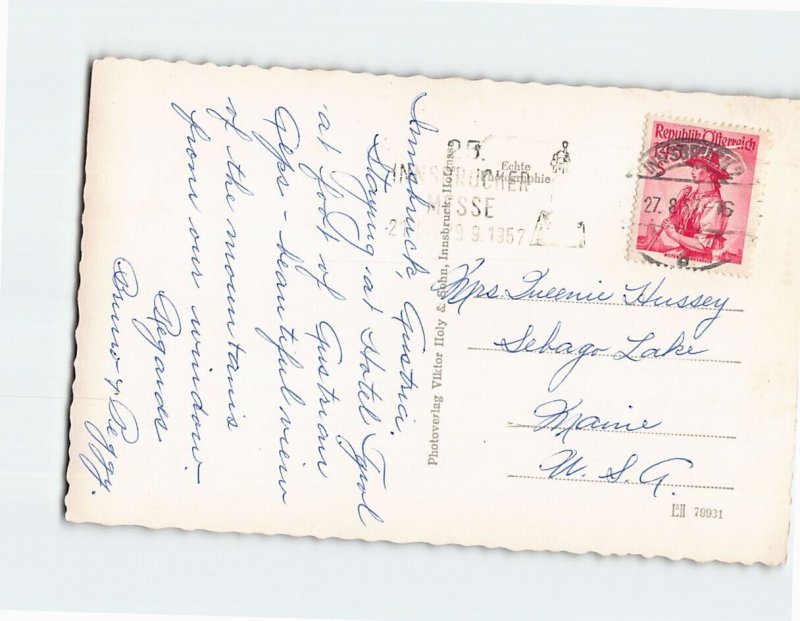 Innsbruck, Austria.
Staying at Hotel Tyrol
at foot of Austrian
Alps - beautiful view
of the mountains
from our window.
Regards
Bruno & Peggy.
Photoverlag Viktor Holy & Sohn, Innsbruck, Hofgasse
Echte
Photographie
25.
INNSBRUCKER
MESSE
9.1957
Republik Österreich
INNSBRUCK
27.8
16
Mrs. Queenie Hussey
Sebago Lake
Maine
U. S. A.
79931